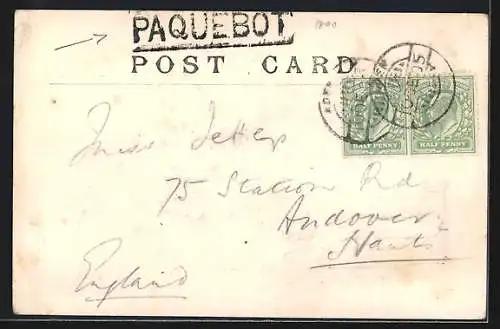 PAQUEBOT
1890
POST CARD
HALF PENNY HALF PENNY
Miss Jetter
75 Station Rd
Andover
Hants
England